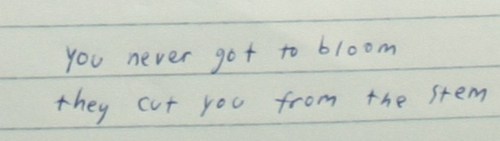 you never got to bloom
they cut you from the stem